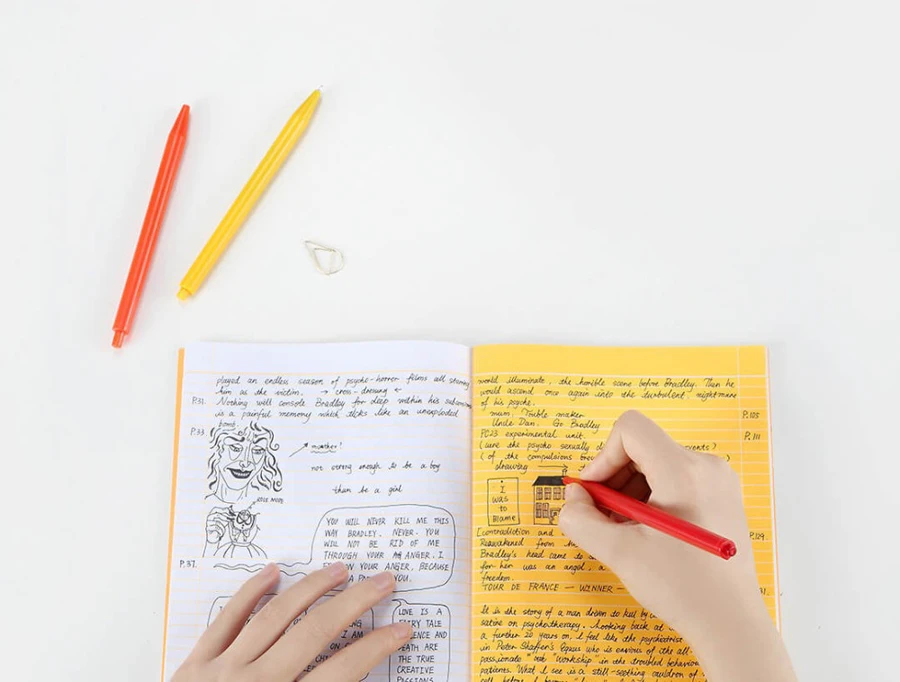 played an endless season of psycho-horror films all starring
him as the victim. → cross-dressing ←
P.31. Nothing will console Bradley for deep within his subconscious
is a painful memory which ticks like an unexploded
bomb.
P.33.
mother!
not strong enough to be a boy
than be a girl
YOU WILL NEVER KILL ME THIS
WAY BRADLEY. NEVER. YOU
WILL NOT BE RID OF ME
THROUGH YOUR ANGER. I
ON YOUR ANGER, BECAUSE
A PA YOU.
P.37.
I AM
LOVE IS A
FAIRY TALE
VIOLENCE AND
DEATH ARE
THE TRUE
CREATIVE
PASSIONS
world illuminate, the horrible scene before Bradley. Then he
would ascend once again into the turbulent nightmare
of his psyche.
mum. Trouble maker P.105
Uncle Dan. Go Bradley
PC23 experimental unit. P.111
(cure the psycho sexually
(of the compulsions
drawing
I
was
to
Blame
[contradiction and P.129.
Reawakened from
Bradley's head came to
for her was an angel, a
freedom.
TOUR DE FRANCE — WINNER — 31.
It is the story of a man driven to kill by
satire on psychotherapy. Looking back at
a further 20 years on, I feel like the psychiatrist
in Peter Shaffer's Equus who is envious of the all-
passionate "out" workship in the troubled behavior
patients. What I see is a still-seething cauldron of